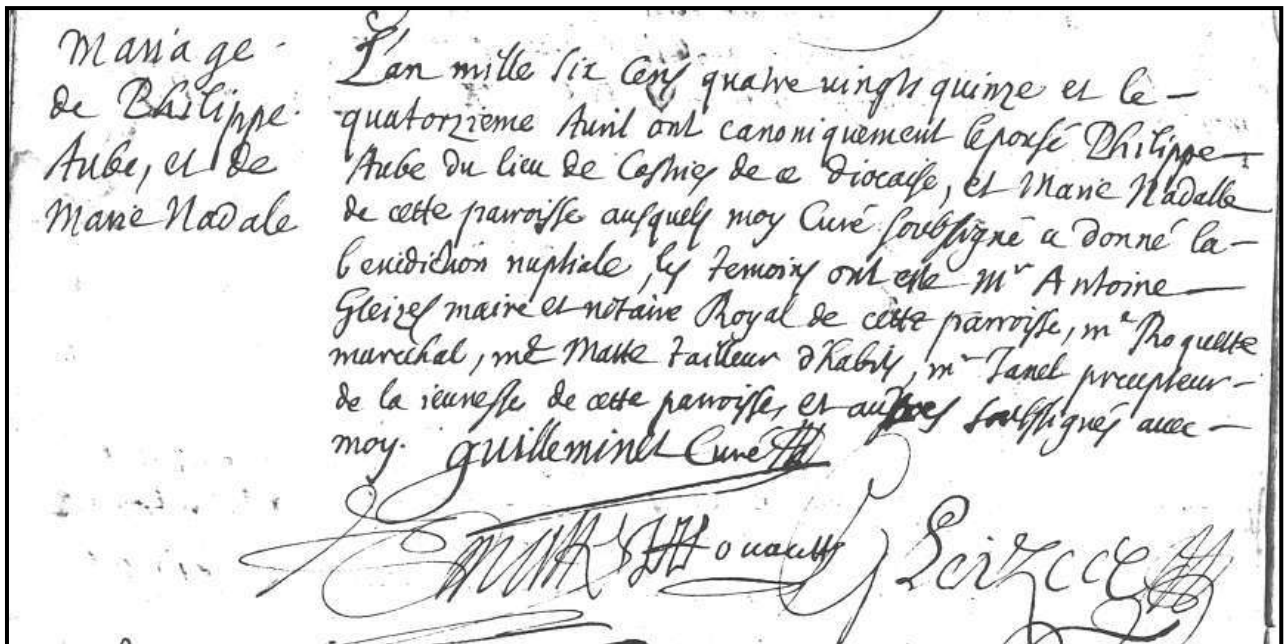 Mariage
de Philippe
Aube, et de
Marie Nadale
L'an mille six cens quatre vingts quinze et le
quatorzieme Auril ont canoniquement epousé Philippe
Aube du lieu de Castries de ce diocaise, et Marie Nadalle
de cette parroisse ausquels moy Curé soubsigné a donné la
benidiction nuptiale, les temoins ont esté mr Antoine
Gleizes maire et notaire Royal de cette parroisse, mr Roquette
marechal, me Matte tailleur d'habits, mr Janel precepteur
de la ieunesse de cette parroisse, et autres soubssignés auec
moy. Guilleminet Curé